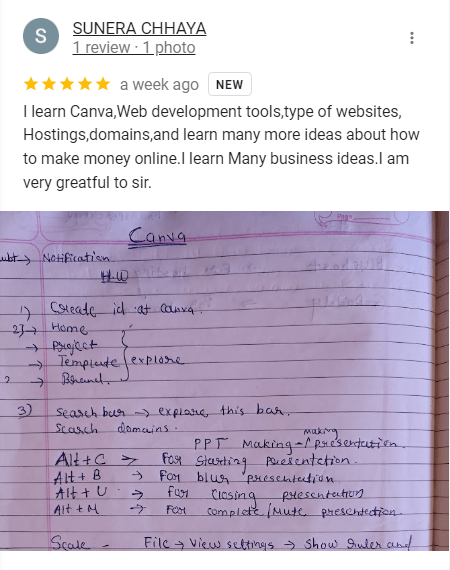 S
SUNERA CHHAYA
1 review · 1 photo
a week ago NEW
I learn Canva,Web development tools,type of websites,
Hostings,domains,and learn many more ideas about how
to make money online.I learn Many business ideas.I am
very greatful to sir.
Canva
Notification
H.W
1) Create id at canva.
2) → Home
→ Project
→ Template explore
→ Brand.
3) search bar → explore this bar.
Search domains.
making
PPT Making → presentation.
Alt + C → For Starting presentation.
Alt + B → For blur presentation
Alt + U → For Closing presentation
Alt + M → For complete / Mute presentation
Scale - File → View settings → Show ruler and